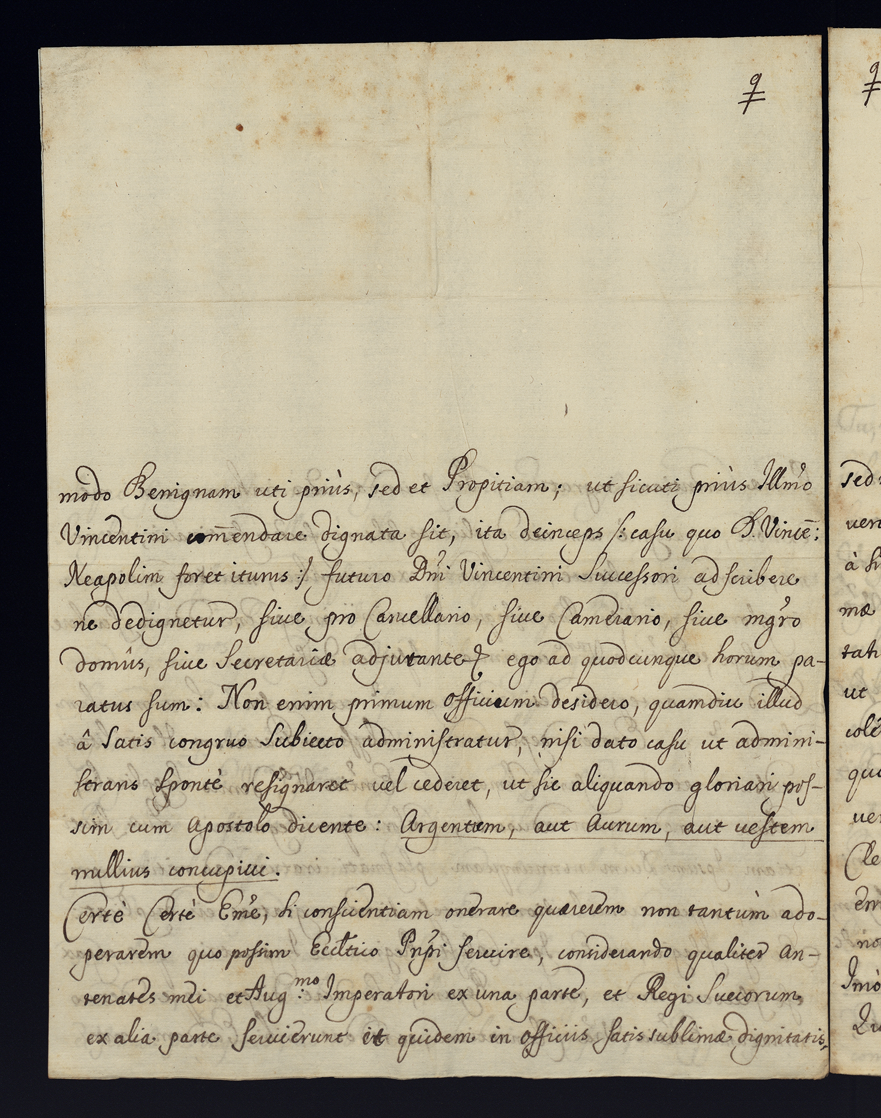 9
modo Benignam uti priùs, sed et Propitiam; ut sicuti priùs Illmo
Vincentini com̄endare dignata sit, ita deinceps /: casu quo D. Vince:
Neapolim foret iturus :/ futuro Dni Vincentini Successori adscribere
ne dedignetur, sive pro Cancellario, sive Camerario, sive mgro
domûs, sive Secretariæ adjutante ego ad quodcunque horum pa-
ratus sum: Non enim primum officium desidero, quamdiu illud
â Satis congruo Subiecto administratur, nisi dato casu ut admini-
strans Spontè resignaret vel cederet, ut sic aliquando gloriari pos-
sim cum Apostolo dicente: Argentum, aut Aurum, aut vestem
nullius concupivi.
Certè Certè Eme, si conscientiam onerare quærerem non tantùm ado-
perarem quo possim Eccltico Pnpi servire, considerando qualiter An-
tenates mei et Aug:mo Imperatori ex una parte, et Regi Suecorum,
ex alia parte servierunt et quidem in officiis satis sublimæ dignitatis,
sed
ven
à
mæ
tati
ut
colé
quo
ver
Cle
em
no
Imò